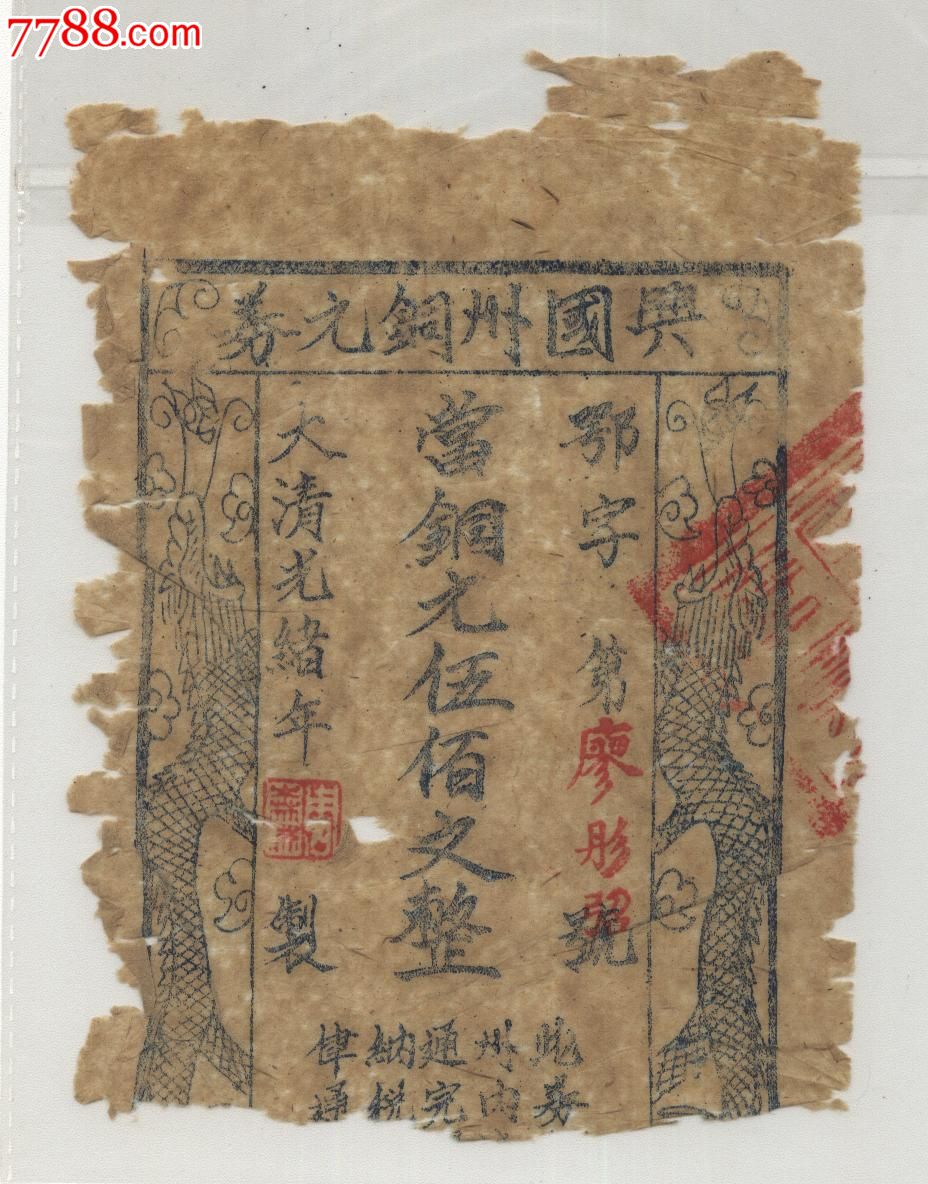 7788.com
興國州銅元券
鄂字第號
廖彤照
當銅元伍佰文整
大清光緒年製
此券
州内
通完
納稅
律通